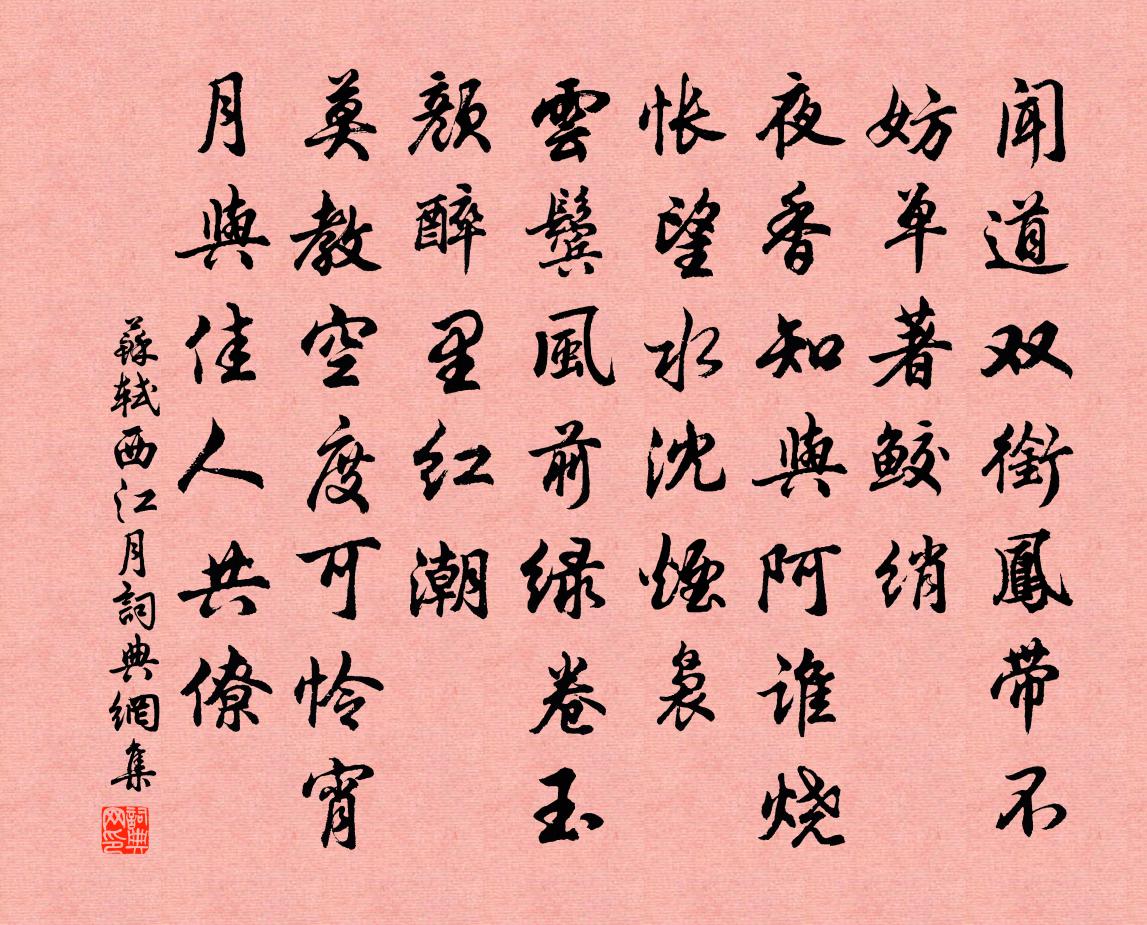 闻道双銜鳳带不
妨单著鲛绡
夜香知與阿谁烧
怅望水沈煙裊
雲鬓風前绿卷玉
颜醉里红潮
莫教空度可怜宵
月與佳人共僚
蘇轼西江月詞典網集
詞典网印